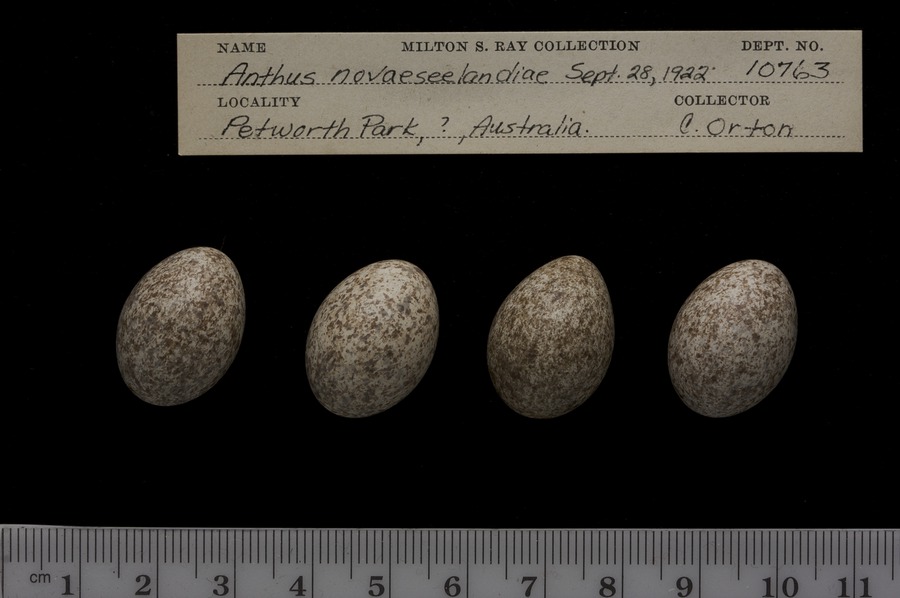 NAME MILTON S. RAY COLLECTION DEPT. NO.
Anthus novaeseelandiae Sept. 28, 1922 10763
LOCALITY COLLECTOR
Petworth Park, ?, Australia. C. Orton
cm 1 2 3 4 5 6 7 8 9 10 11